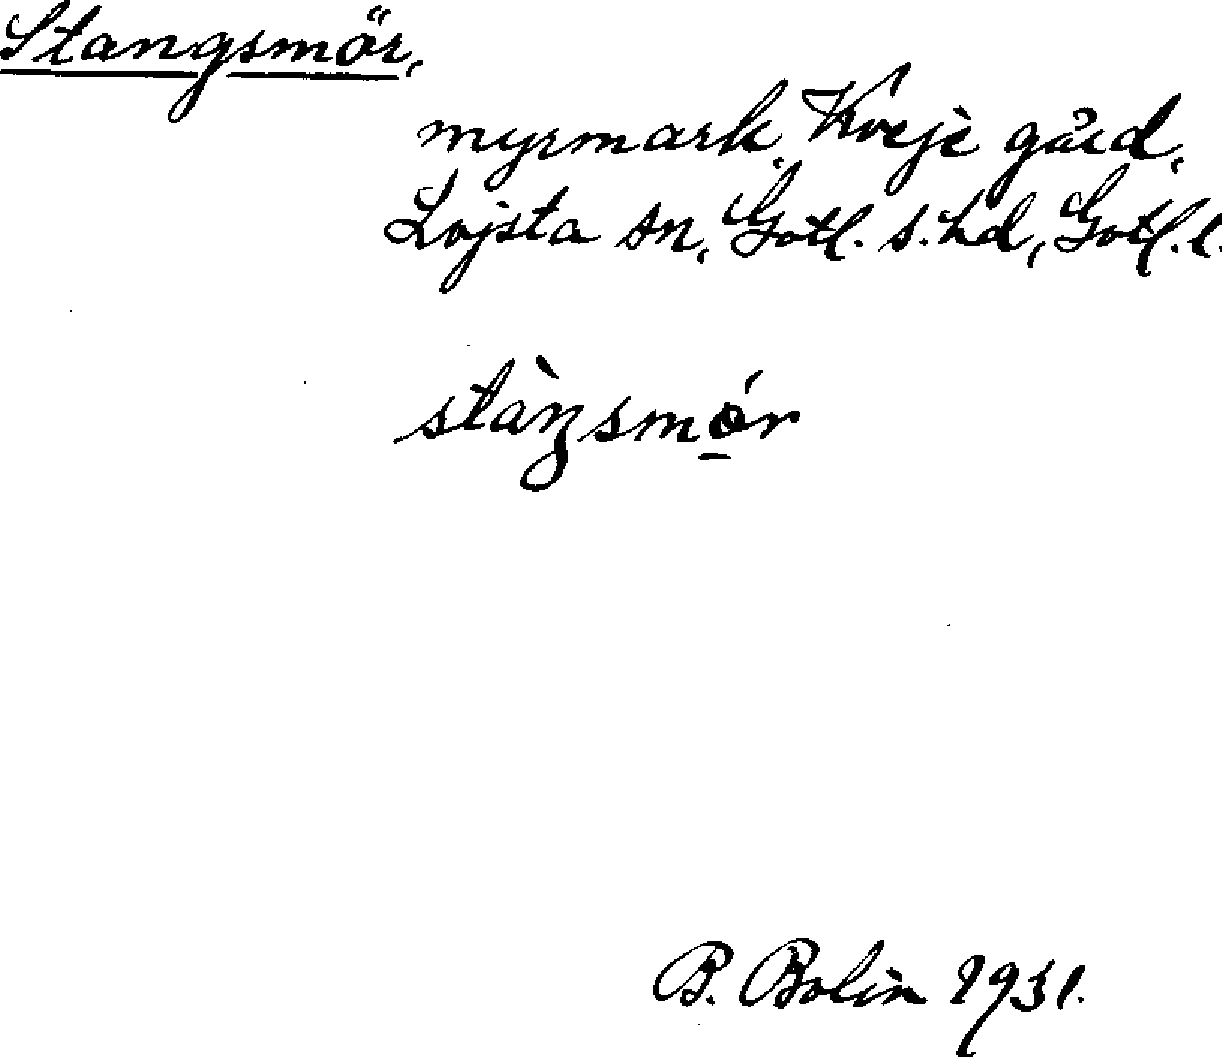 Stangsmör,
myrmark, Kveje gård,
Lojsta sn, Gotl. s. hd, Gotl. l.
stàŋsmö́r
B. Bolin 1931.